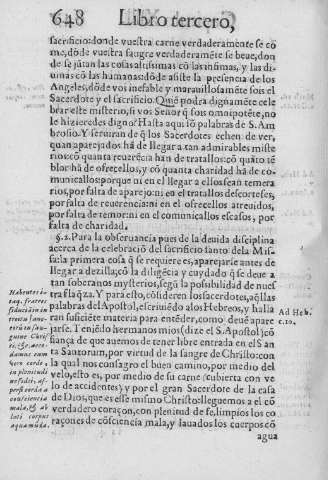 648 Libro tercero,
sacrificio: donde vuestra carne verdaderamente se co
me, dõde vuestra sangre verdaderamẽte se beue, don
de se jũtan las cosas altissimas cõ las infimas, y las di-
uinas cõ las humanas: dõde assiste la presencia de los
Angeles, dõde vos inefable y marauillosamẽte sois el
Sacerdote y el sacrificio. Quiẽ podra dignamẽte cele
brar este misterio, si vos Señor q̃ sois omnipotẽte, no
le hizieredes digno? Hasta aqui sõ palabras de S. Am
brosio. Y seruiran de q̃ los Sacerdotes echen de ver,
quan aparejados hã de llegar a tan admirables miste
rios: cõ quanta reuerẽcia han de tratallos: cõ quãto tẽ
blor hã de ofrecellos, y cõ quanta charidad hã de co-
municallos: porque ni en el llegar a ellos seãn temera
rios, por falta de aparejo: ni en el tratallos descorteses,
por falta de reuerencia: ni en el ofrecellos atreuidos,
por falta de temor: ni en el comunicallos escasos, por
falta de charidad.
§. 2. Para la obseruancia pues de la deuida disciplina
acerca de la celebraciõ del sacrificio santo de la Mis-
sa: la primera cosa q̃ se requiere es, aparejarse antes de
llegar a dezilla, cõ la diligẽcia y cuydado q̃ se deue a
tan soberanos mysterios, segũ la possibilidad de nues
tra flaq̃za. Y para esto, cõsideren los sacerdotes, aq̃llas
palabras del Apostol, escriuiẽdo a los Hebreos, y halla
ran suficiẽte materia para entẽder, como deuẽ apare
jarse. Teniẽdo hermanos mios (dize el S. Apostol) cõ
fiança de que auemos de tener libre entrada en el San
ta Santorum, por virtud de la sangre de Christo: con
la qual nos consagro el buen camino, por medio del
velo, esto es, por medio de su carne (cubierta con ve
lo de accidentes) y por el gran Sacerdote de la casa
de Dios, que es esse mismo Christo: lleguemos a el cõ
verdadero coraçon, con plenitud de fe, limpios los co
raçones de cõsciencia mala, y lauados los cuerpos cõ
agua
Habentes i-
taq. fratres
fiduciã in in
troitu sanc-
torũ in san-
guine Chris
ti. &c. acce-
damus cum
vero corde
in plenitudi
ne fidei, as-
persi corda a
consciencia
mala, & ab
luti corpus
aqua mũda.
Ad Heb.
c. 10.